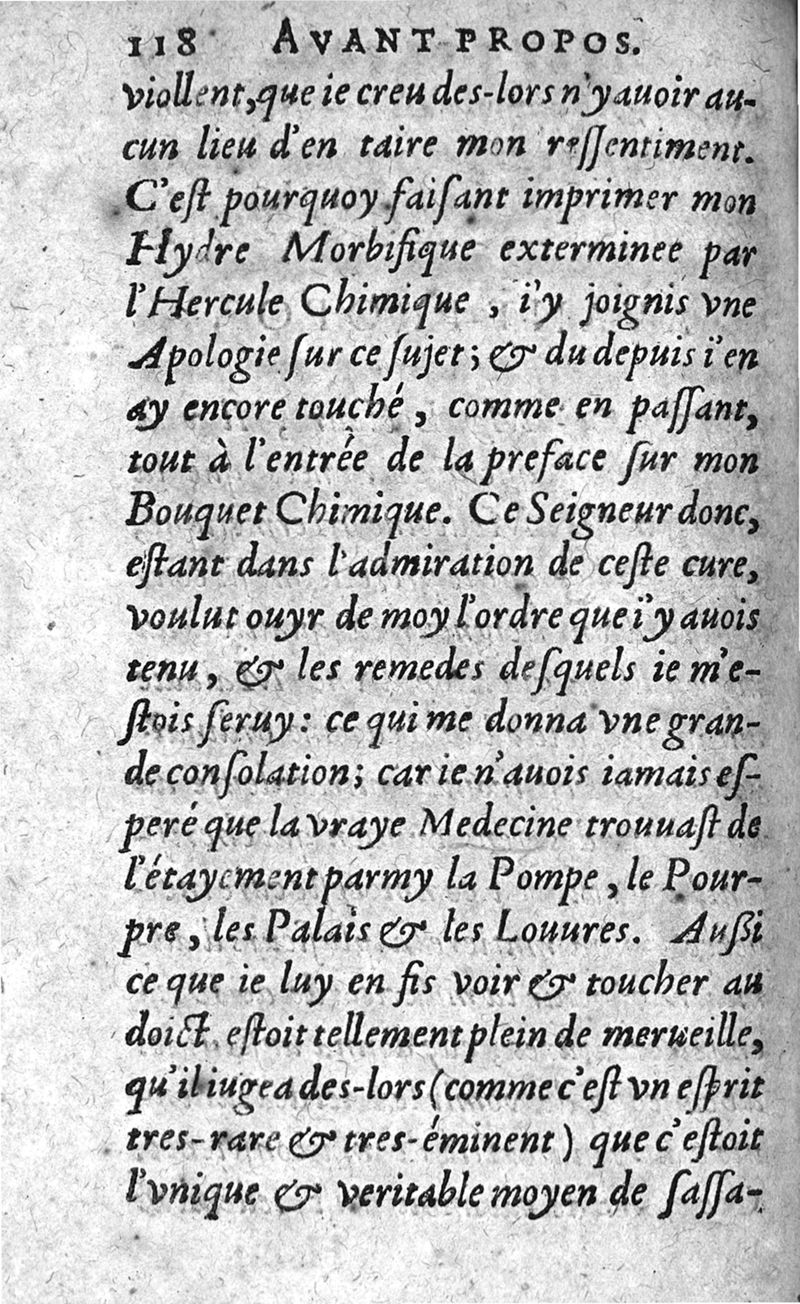 118 AVANT PROPOS.
viollent, que ie creu des-lors n'y auoir au-
cun lieu d'en taire mon reſſentiment.
C'eſt pourquoy faiſant imprimer mon
Hydre Morbifique exterminee par
l'Hercule Chimique, i'y joignis vne
Apologie ſur ce ſujet; & du depuis i'en
ay encore touché, comme en paſſant,
tout à l'entrée de la preface ſur mon
Bouquet Chimique. Ce Seigneur donc,
eſtant dans l'admiration de ceſte cure,
voulut ouyr de moy l'ordre que i'y auois
tenu, & les remedes deſquels ie m'e-
ſtois ſeruy: ce qui me donna vne gran-
de conſolation; car ie n'auois iamais eſ-
peré que la vraye Medecine trouuaſt de
l'étayement parmy la Pompe, le Pour-
pre, les Palais & les Louures. Außi
ce que ie luy en fis voir & toucher au
doict eſtoit tellement plein de merueille,
qu'il iugea des-lors (comme c'eſt vn eſprit
tres-rare & tres-éminent) que c'eſtoit
l'vnique & veritable moyen de ſaſſa-